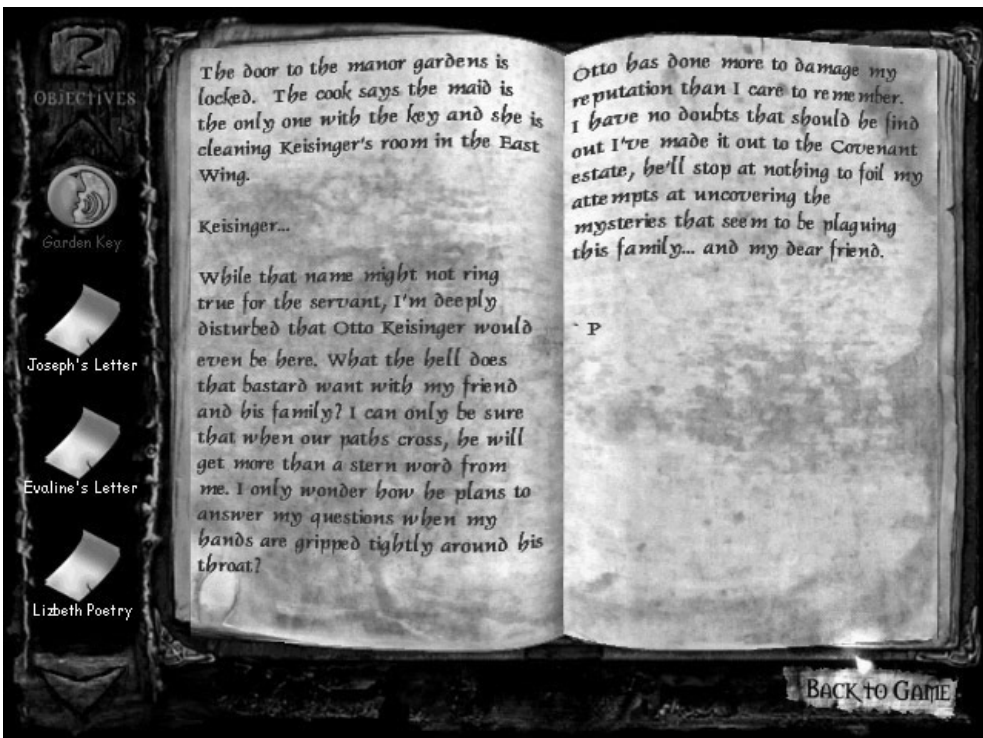 OBJECTIVES
Garden Key
Joseph's Letter
Evaline's Letter
Lizbeth Poetry
The door to the manor gardens is
locked. The cook says the maid is
the only one with the key and she is
cleaning Keisinger's room in the East
Wing.
Keisinger...
While that name might not ring
true for the servant, I'm deeply
disturbed that Otto Keisinger would
even be here. What the hell does
that bastard want with my friend
and his family? I can only be sure
that when our paths cross, he will
get more than a stern word from
me. I only wonder how he plans to
answer my questions when my
hands are gripped tightly around his
throat?
Otto has done more to damage my
reputation than I care to remember.
I have no doubts that should he find
out I've made it out to the Covenant
estate, he'll stop at nothing to foil my
attempts at uncovering the
mysteries that seem to be plaguing
this family... and my dear friend.
` P
BACK TO GAME